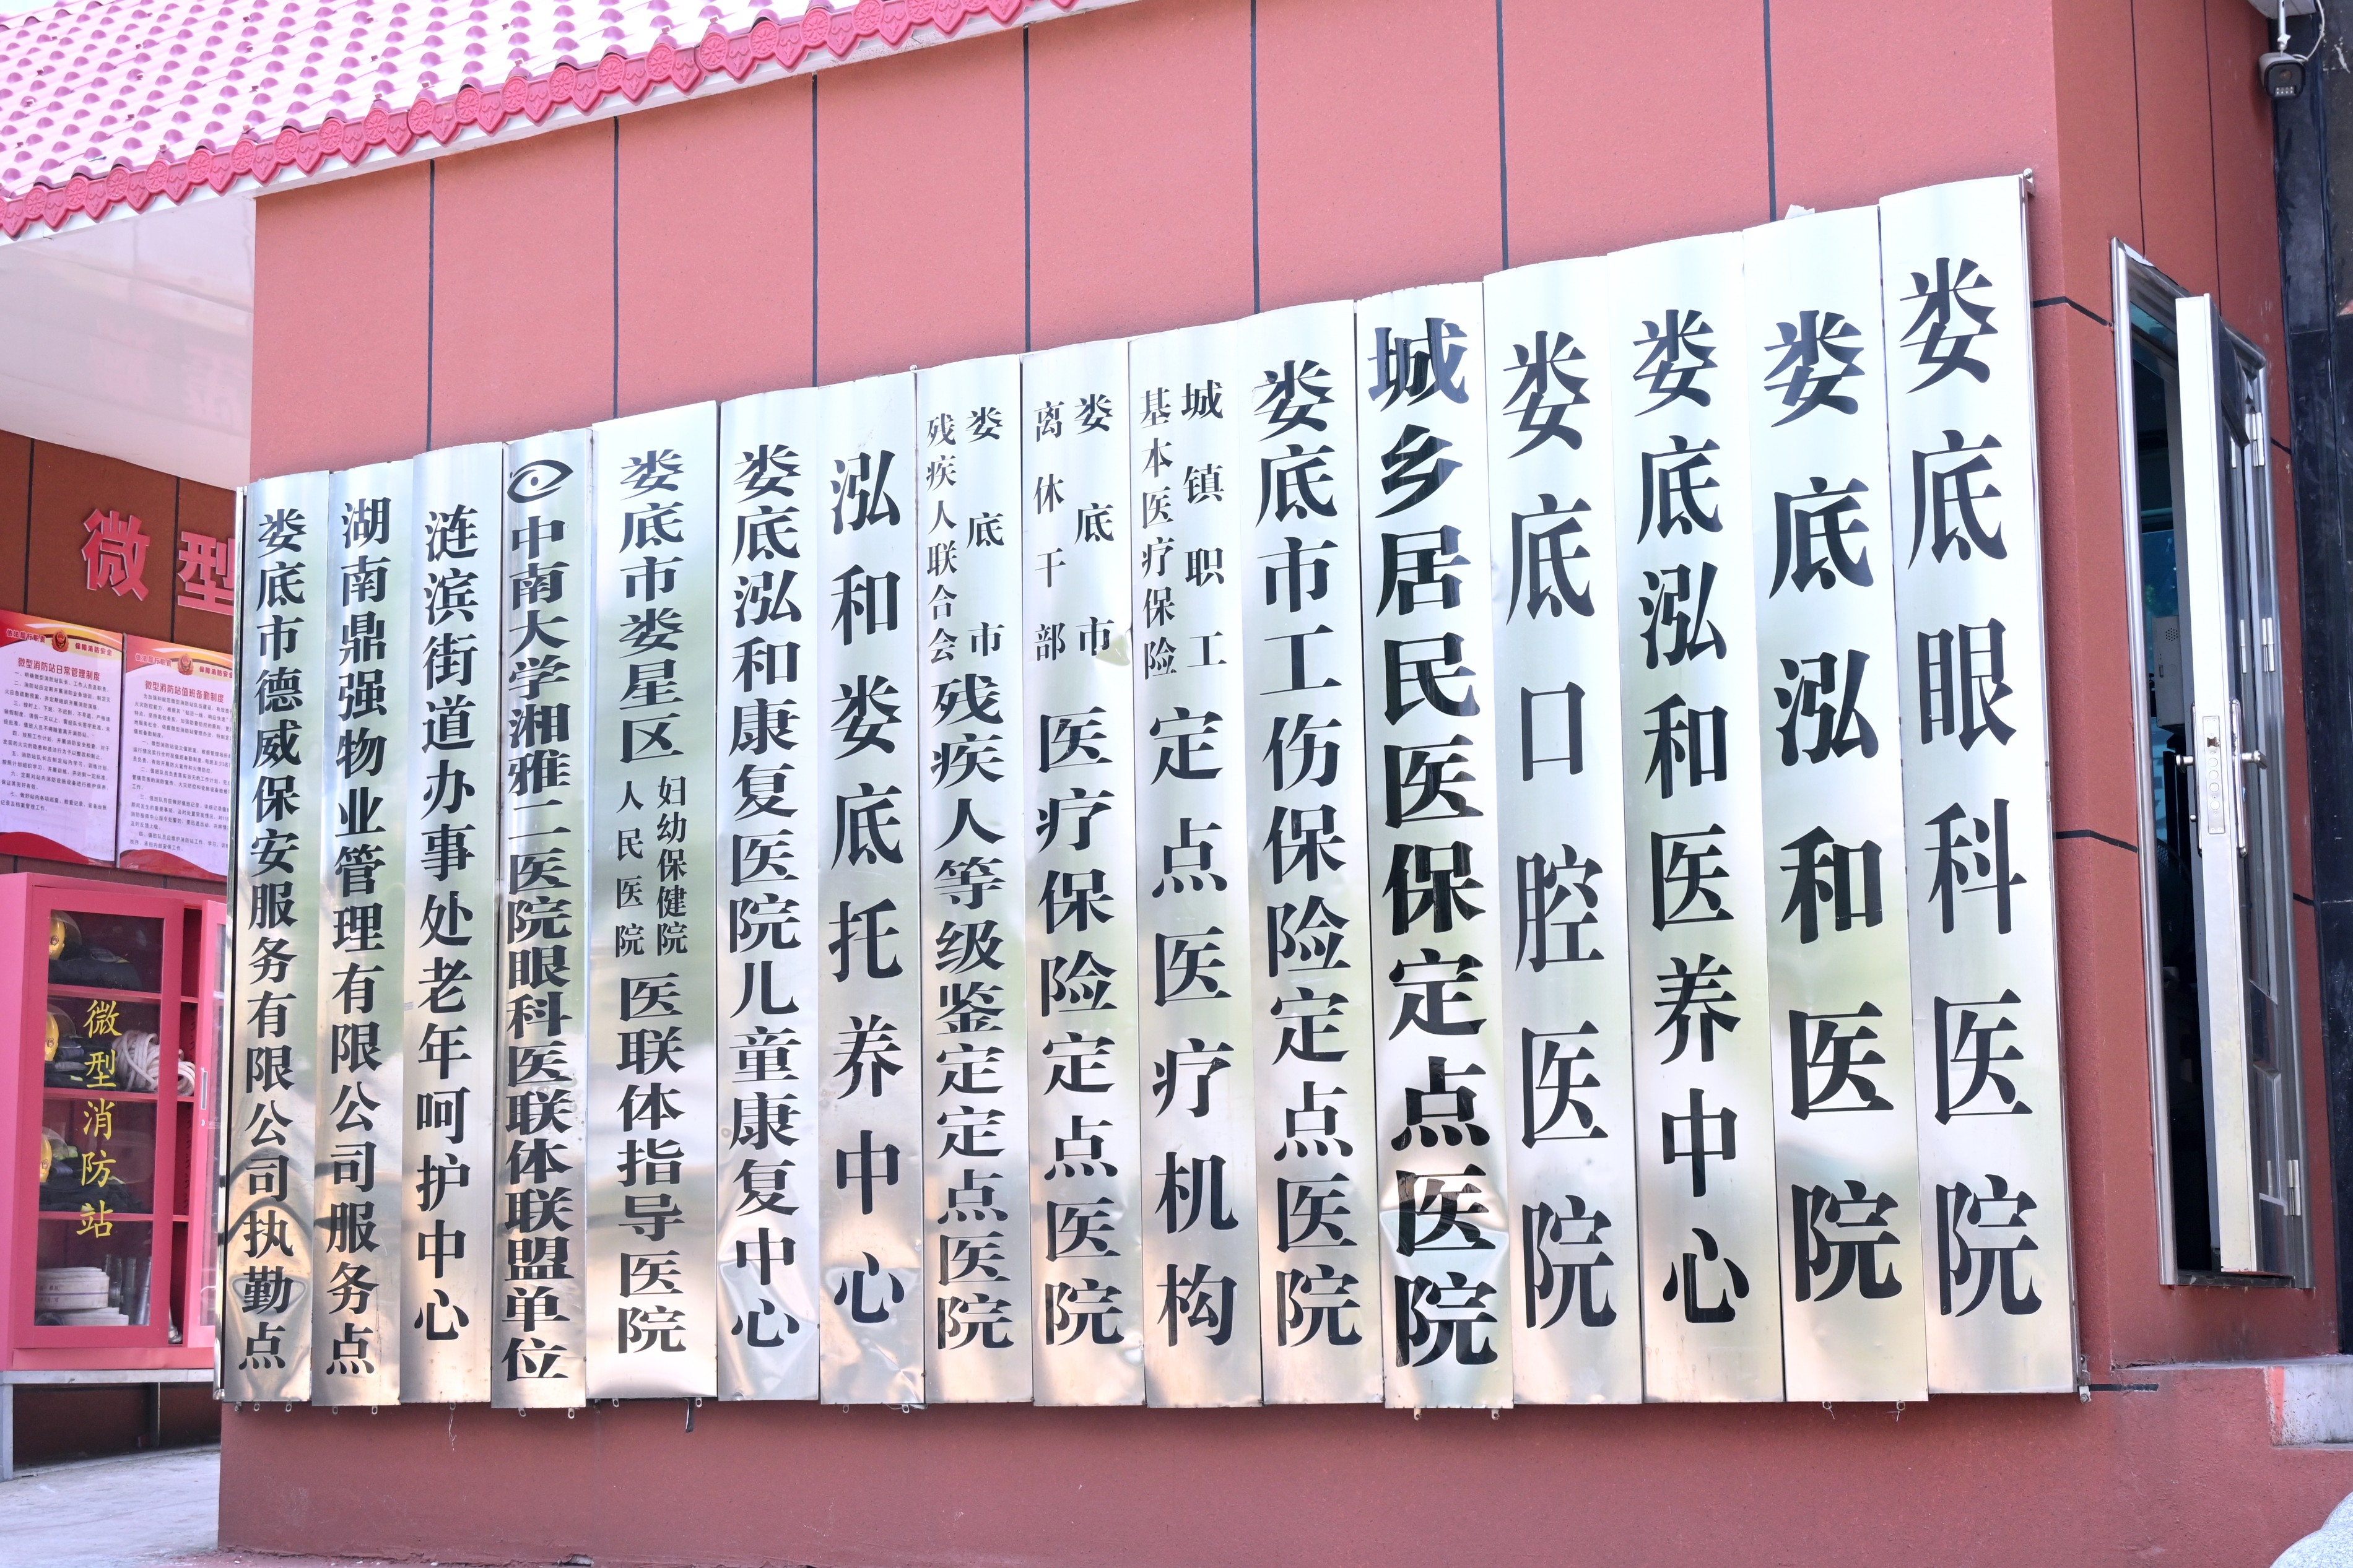 娄底眼科医院
娄底泓和医院
娄底泓和医养中心
娄底口腔医院
城乡居民医保定点医院
娄底市工伤保险定点医院
城镇职工
基本医疗保险
定点医疗机构
娄底市
离休干部
医疗保险定点医院
娄底市
残疾人联合会
残疾人等级鉴定定点医院
泓和娄底托养中心
娄底泓和康复医院儿童康复中心
娄底市娄星区
妇幼保健院
人民医院
医联体指导医院
中南大学湘雅二医院眼科医联体联盟单位
涟滨街道办事处老年呵护中心
湖南鼎强物业管理有限公司服务点
娄底市德威保安服务有限公司执勤点
微型
微型消防站日常管理制度
微型消防站值班备勤制度
微型消防站